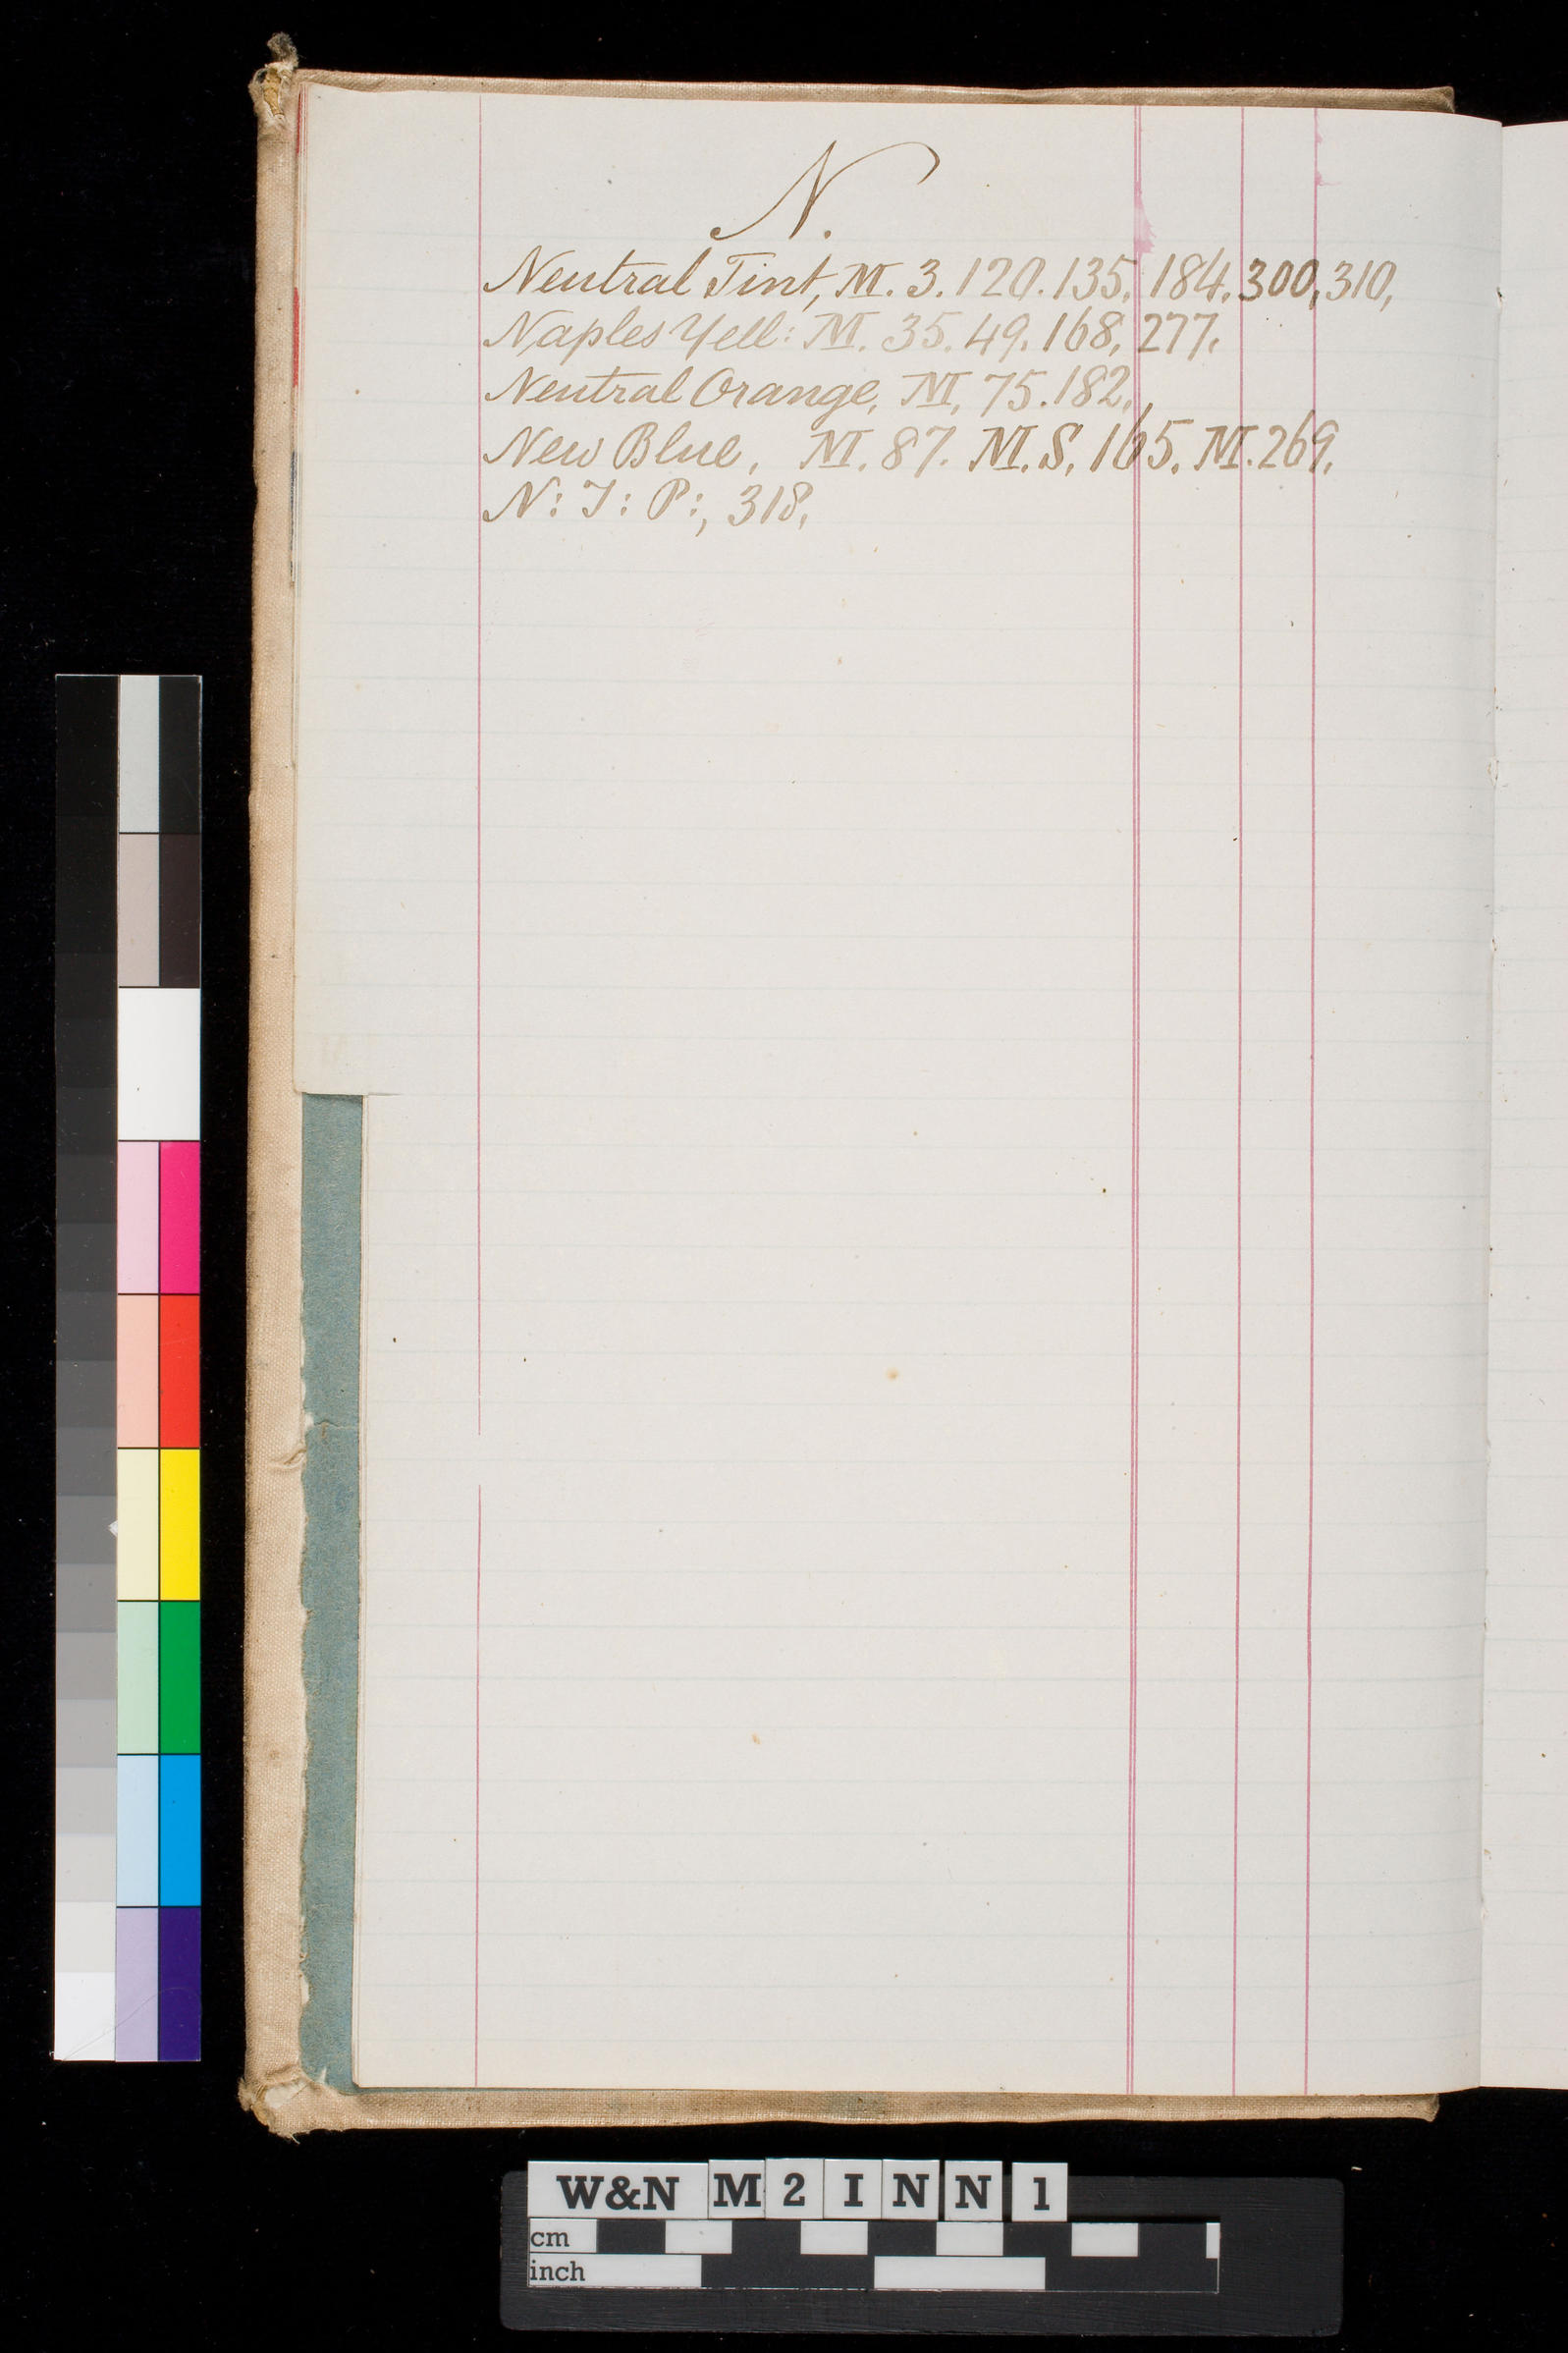 N.
Neutral Tint, M. 3. 120. 135. 184. 300, 310,
Naples Yell: M. 35. 49. 168, 277.
Neutral Orange, M, 75. 182.
New Blue, M. 87. M.S. 165. M. 269.
N: T: P:, 318.
W&N M 2 I N N 1
cm
inch